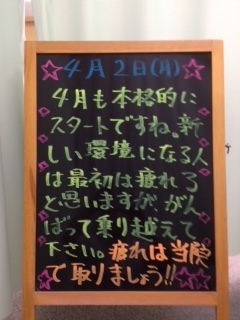 4月2日(月)
4月も本格的に
スタートですね。新
しい環境になる人
は最初は疲れる
と思いますが、がん
ばって乗り越えて
下さい。疲れは当院
で取りましょう!!